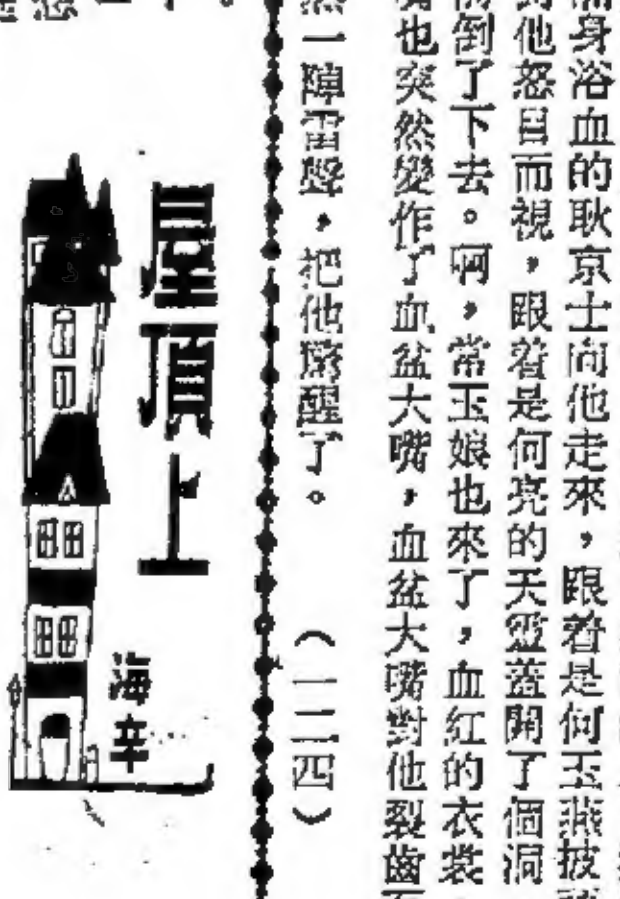 身浴血的耿京士向他走來，跟着是何玉燕披
他怒目而視，跟着是何亮的天靈蓋開了個洞
倒了下去。啊，常玉娘也來了，血紅的衣裳
也突然變作了血盆大嘴，血盆大嘴對他裂齒
然一陣雷聲，把他驚醒了。
（一二四）
屋頂上
海辛